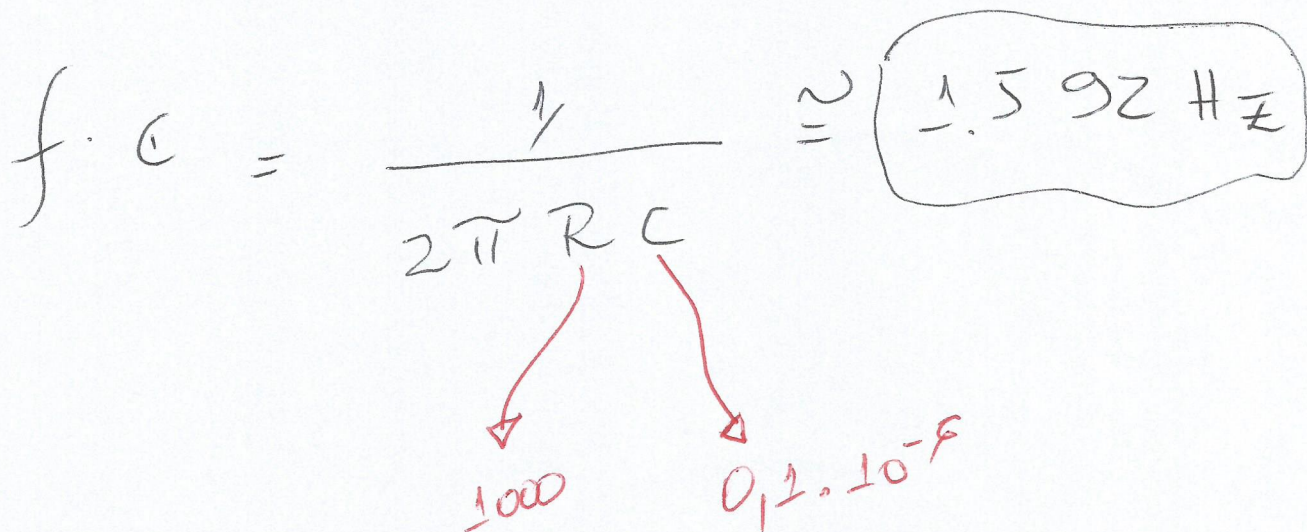 f.C = 1/2πRC ≅ 1.592 Hz
1000 0,1.10⁻⁶